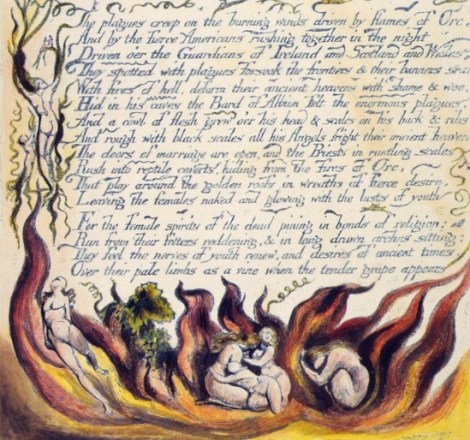 The plagues creep on the burning winds driven by flames of Orc
And by the fierce Americans rushing together in the night
Driven o'er the Guardians of Ireland and Scotland and Wales
They spotted with plagues forsook the frontiers & their banners sea
With fires of hell, deform their ancient heavens with shame & woe.
Hid in his caves the Bard of Albion felt the enormous plagues.
And a cowl of flesh grew o'er his head & scales on his back & ribs
And rough with black scales all his Angels fright their ancient heaven
The doors of marriage are open, and the Priests in rustling scales
Rush into reptile coverts, hiding from the fires of Orc,
That play around the golden roofs in wreaths of fierce desire,
Leaving the females naked and glowing with the lusts of youth
For the female spirits of the dead pining in bonds of religion;
Run from their fetters reddening, & in long drawn arches sitting:
They feel the nerves of youth renew, and desires of ancient times,
Over their pale limbs as a vine when the tender grape appears